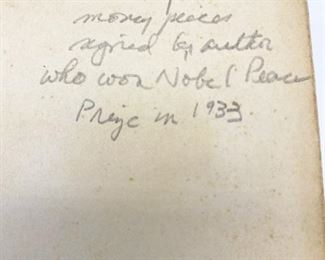 money pieces
signed by author
who won Nobel Peace
Prize in 1933